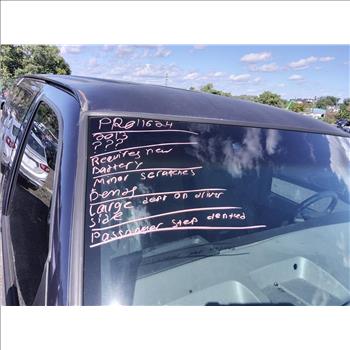 PR011624
2013
???
Requires new
Battery
Minor scratches
Dents
Large dent on driver
side
Passenger step dented